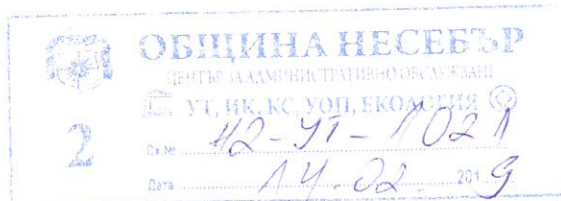 ОБЩИНА НЕСЕБЪР
ЦЕНТЪР ЗА АДМИНИСТРАТИВНО ОБСЛУЖВАНЕ
УТ, ИК, КС, УОП, ЕКОЛОГИЯ
2
Вх.№ Н2-УТ-1021
Дата 14.02. 2019